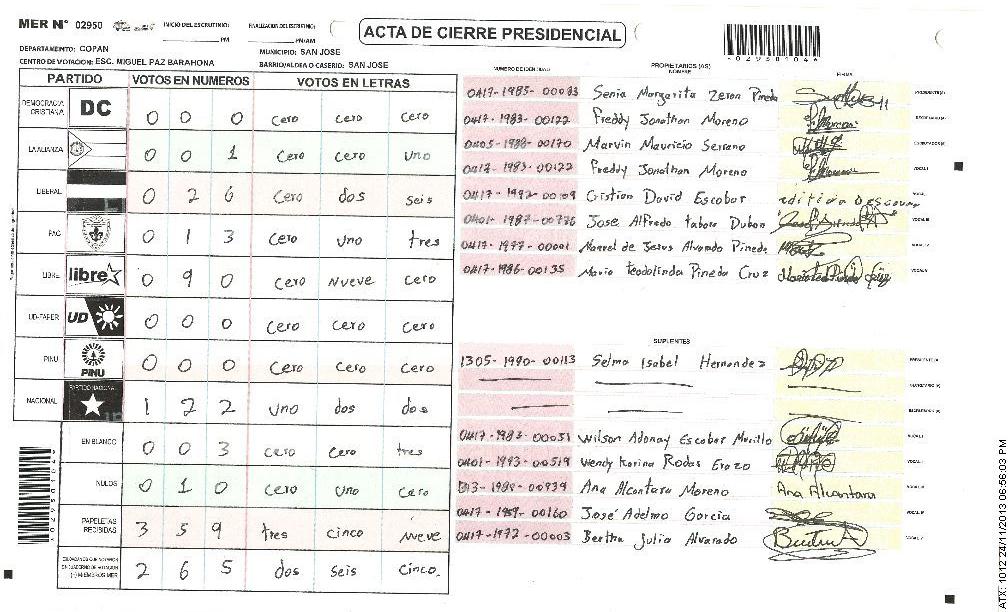 MER N° 02950
INICIO DEL ESCRUTINIO: PM
FINALIZACION DEL ESCRUTINIO: PM/AM
ACTA DE CIERRE PRESIDENCIAL
DEPARTAMENTO: COPAN
MUNICIPIO: SAN JOSE
CENTRO DE VOTACION: ESC. MIGUEL PAZ BARAHONA
BARRIO/ALDEA O CASERIO: SAN JOSE
PARTIDO VOTOS EN NUMEROS VOTOS EN LETRAS
DEMOCRACIA CRISTIANA DC 0 0 0 Cero Cero Cero
LA ALIANZA 0 0 1 Cero Cero Uno
LIBERAL 0 2 6 Cero dos seis
PAC 0 1 3 Cero Uno tres
LIBRE libre 0 9 0 Cero Nueve Cero
UD-FAPER UD 0 0 0 Cero Cero Cero
PINU PINU 0 0 0 Cero Cero Cero
NACIONAL PARTIDO NACIONAL 1 2 2 Uno dos dos
EN BLANCO 0 0 3 Cero Cero tres
NULOS 0 1 0 Cero Uno Cero
PAPELETAS RECIBIDAS 3 5 9 tres Cinco Nueve
CIUDADANOS QUE VOTARON EN CUADERNO DE VOTACION (+) MIEMBROS MER 2 6 5 dos seis Cinco.
NUMERO DE IDENTIDAD PROPIETARIOS (AS) NOMBRE FIRMA
0417-1985-00083 Senia Margarita Zeron Pineda PRESIDENTE(A)
0417-1983-00122 Freddy Jonathan Moreno SECRETARIO(A)
0405-1988-00170 Marvin Mauricio Serrano ESCRUTADOR(A)
0417-1983-00122 Freddy Jonathan Moreno VOCAL I
0417-1992-00109 Cristian David Escobar
0401-1987-00776 Jose Alfredo Tabora Dubon VOCAL III
0417-1977-00001 Manuel de Jesus Alvarado Pineda
0417-1986-00135 Maria Teodolinda Pineda Cruz
SUPLENTES
1305-1990-00113 Selma Isabel Hernandez PRESIDENTE (A)
SECRETARIO (A)
ESCRUTADOR (A)
0417-1983-00051 Wilson Adonay Escobar Murillo VOCAL I
0401-1993-00519 Wendy Karina Rodas Erazo
Ana Alcantara Moreno Ana Alcantara
0417-1959-00160 José Adelmo Garcia
0417-1972-00003 Bertha Julia Alvarado
ATX: 1012 24/11/2013 06:56:03 PM